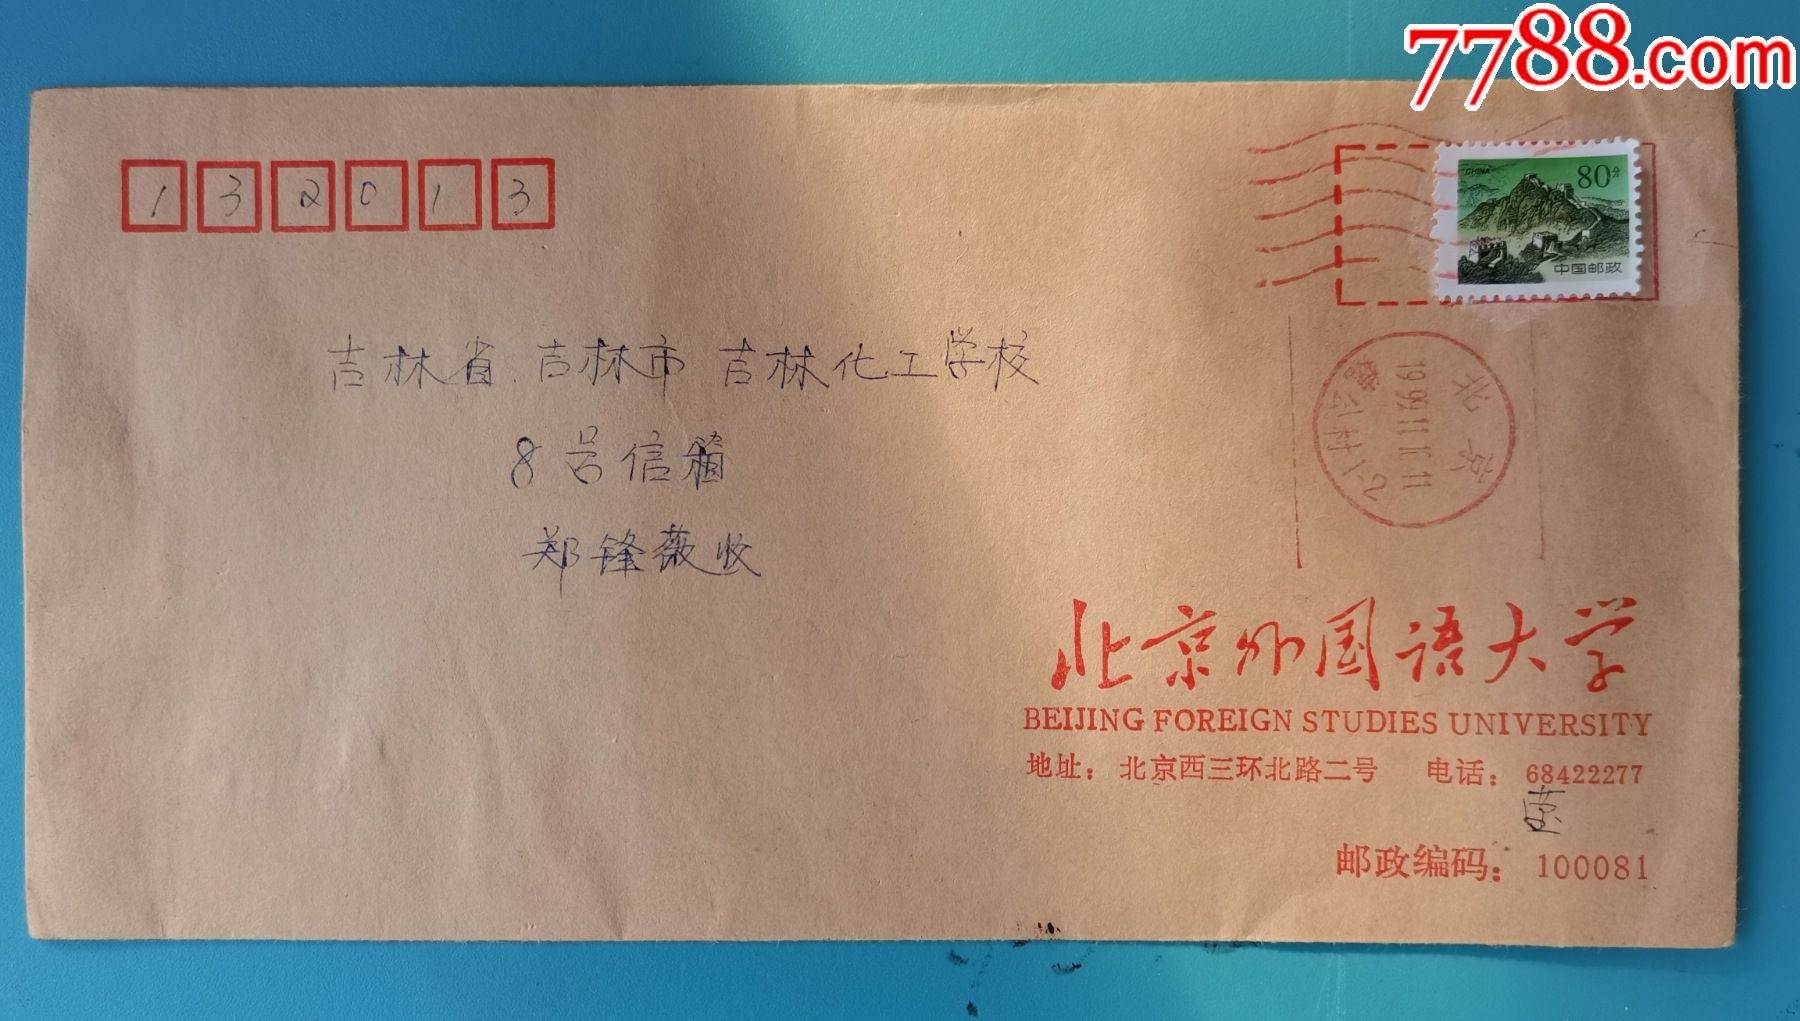 7788.com
132013
CHINA 80分
中国邮政
北京
1999.11.10.11
吉林省 吉林市 吉林化工学校
8号信箱
郑锋薇收
北京外国语大学
BEIJING FOREIGN STUDIES UNIVERSITY
地址：北京西三环北路二号 电话：68422277
邮政编码：100081